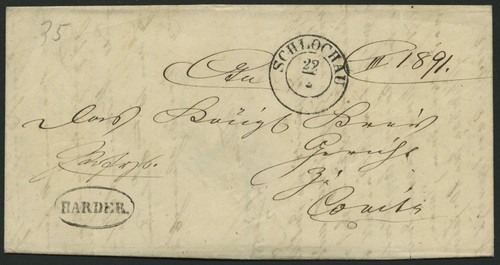 35
SCHLOCHAU
22
2
An III 1891.
Das Königl Kreis
Gericht
zu
Conitz
HARDER.